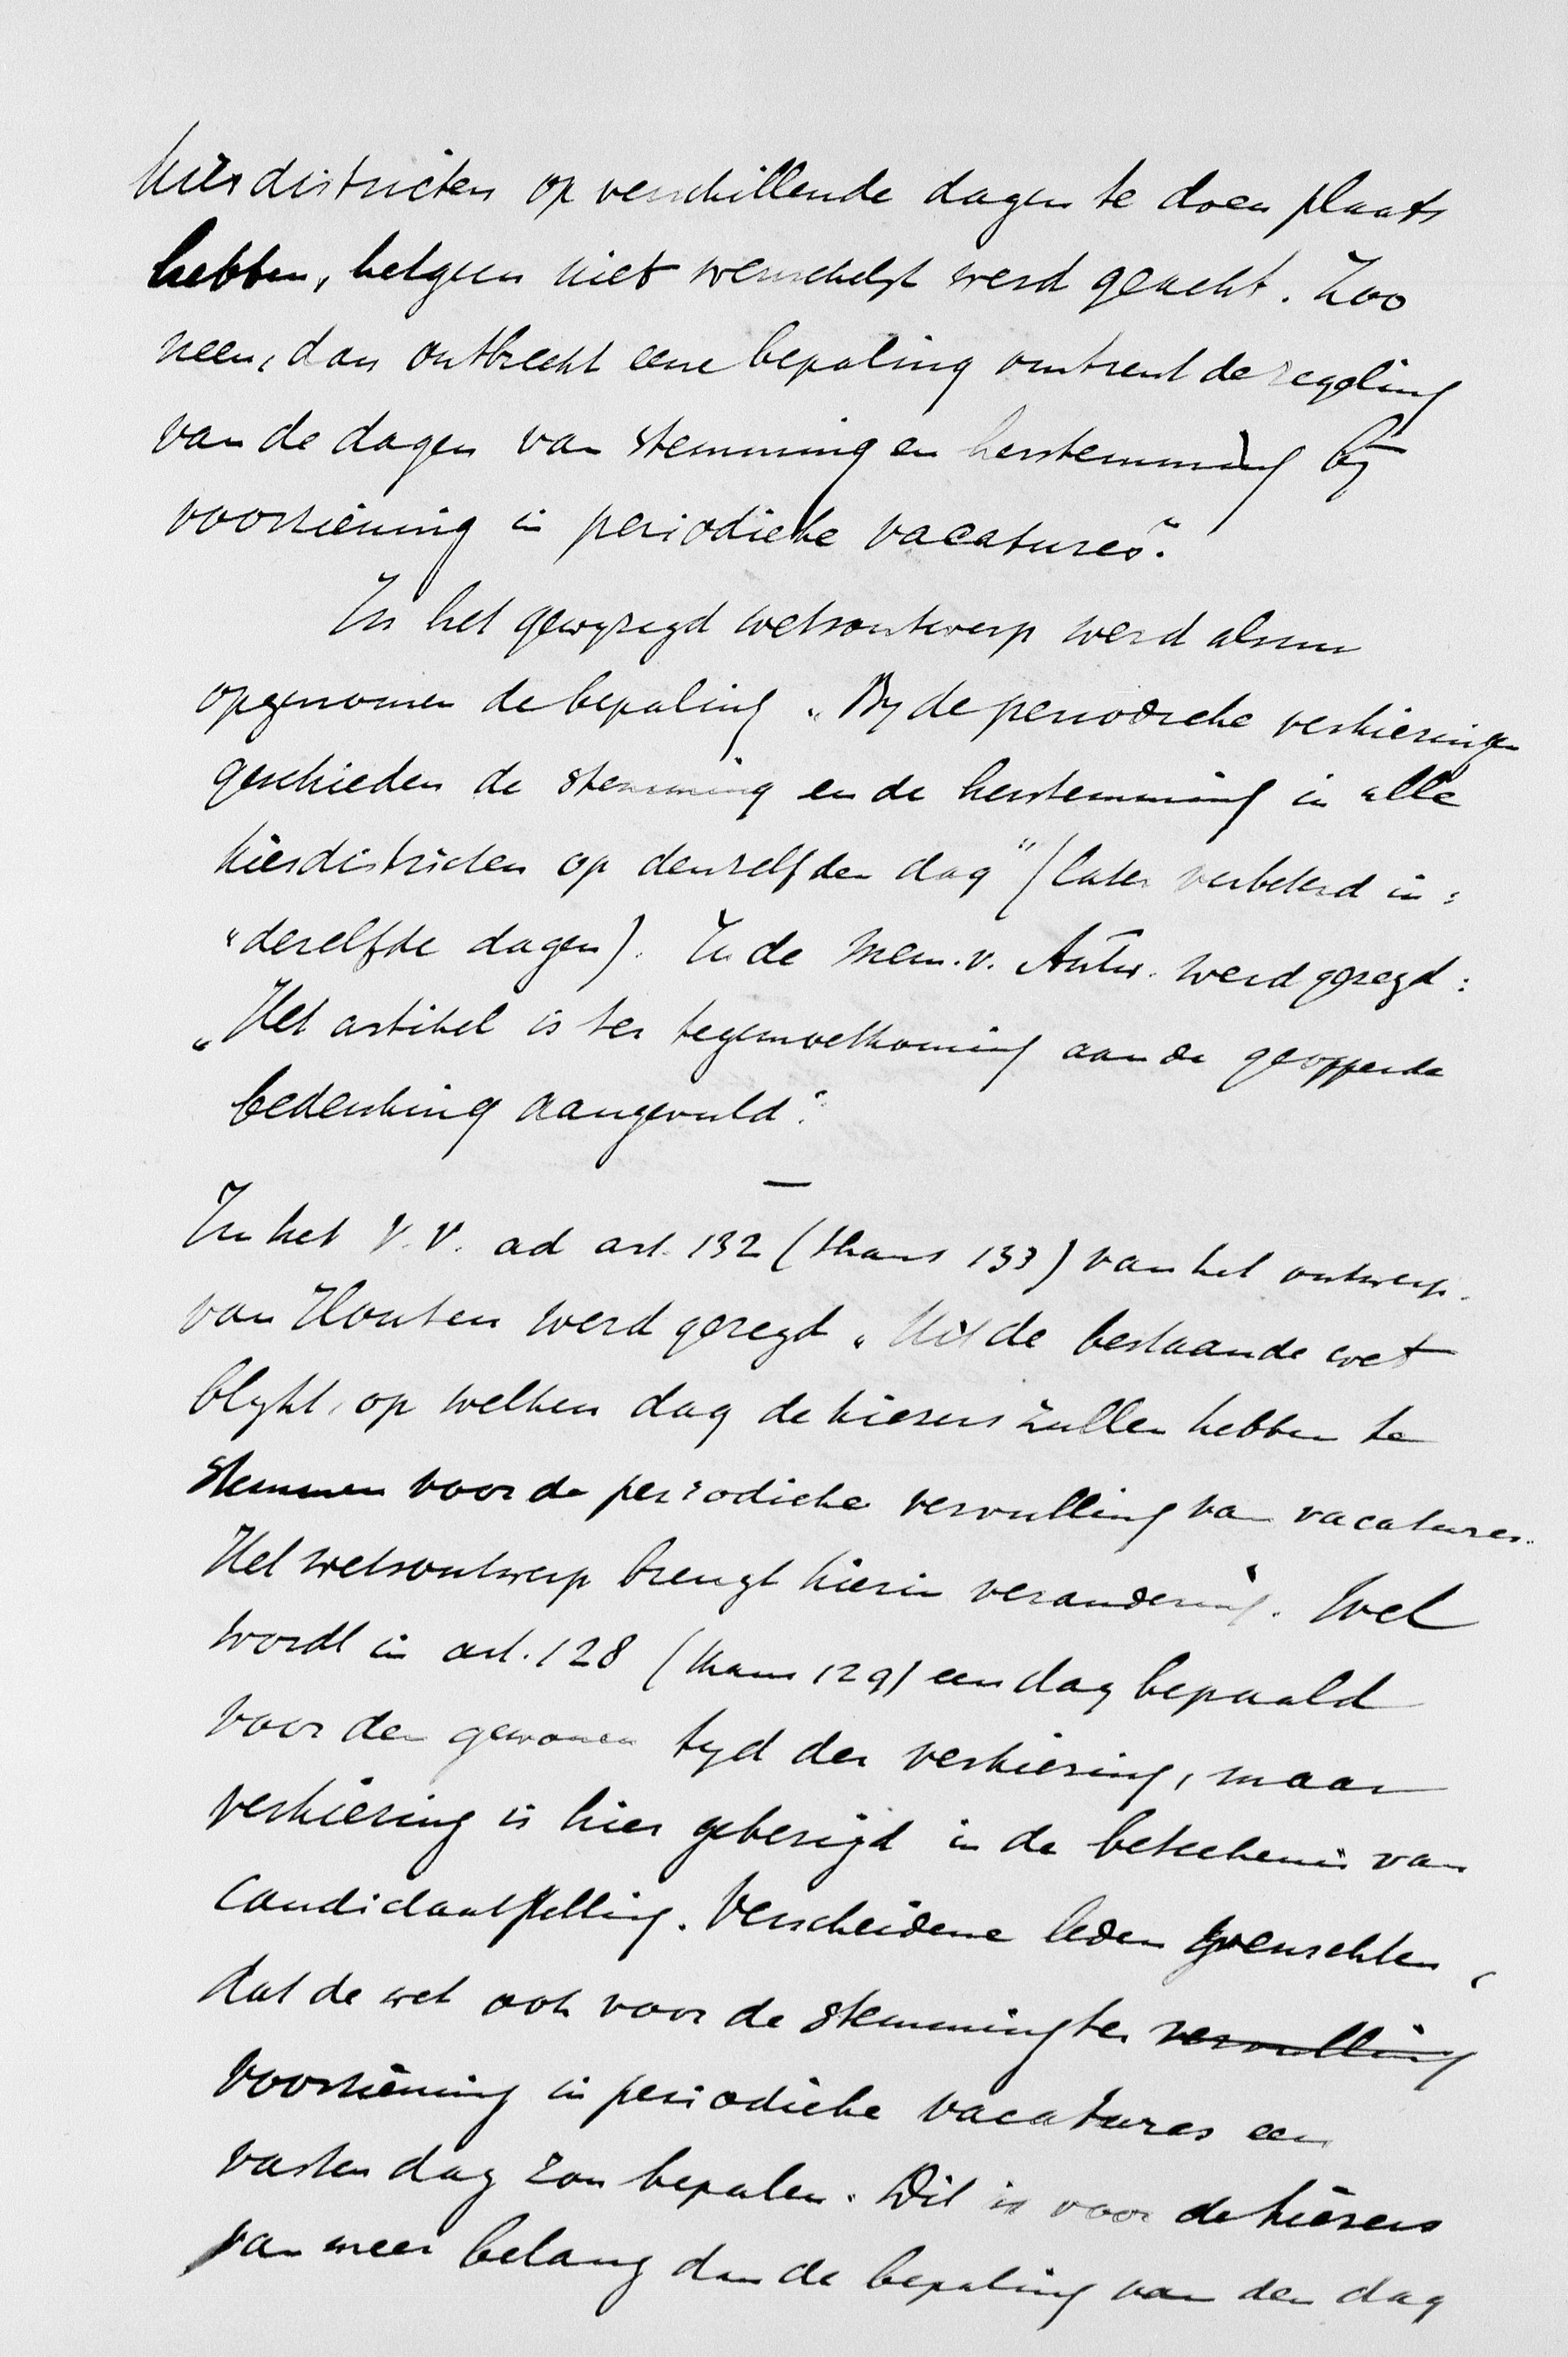 kiesdistricten op verschillende dagen te doen plaats
hebben, hetgeen niet wenschelijk werd geacht. Zoo
neen, dan ontbreekt eene bepaling omtrent de regeling
van de dagen van stemming en herstemming bij
voorziening in periodieke vacatures."
In het gewijzigd wetsontwerp werd alsnu
opgenomen de bepaling „Bij de periodieke verkiezingen
geschieden de stemming en de herstemming in alle
kiesdistricten op denzelfden dag" (later verbeterd in:
"dezelfde dagen). In de Mem. v. Antw. werd gezegd:
„Het artikel is ter tegemoetkoming aan de geopperde
bedenking aangevuld".
—
In het V.V. ad art. 132 (thans 133) van het ontwerp.
van Houten werd gezegd „Uit de bestaande wet
blijkt, op welken dag de kiezers zullen hebben te
stemmen voor de periodieke vervulling van vacatures.
Het wetsontwerp brengt hierin verandering. Wel
wordt in art. 128 (thans 129) een dag bepaald
voor den gewonen tijd der verkiezing, maar
verkiezing is hier gebezigd in de beteekenis van
candidaatstelling. Verscheidene leden wenschten,
dat de wet ook voor de stemming ter vervulling
voorziening in periodieke vacatures een
vasten dag zou bepalen. Dit is voor de kiezers
van meer belang dan de bepaling van den dag